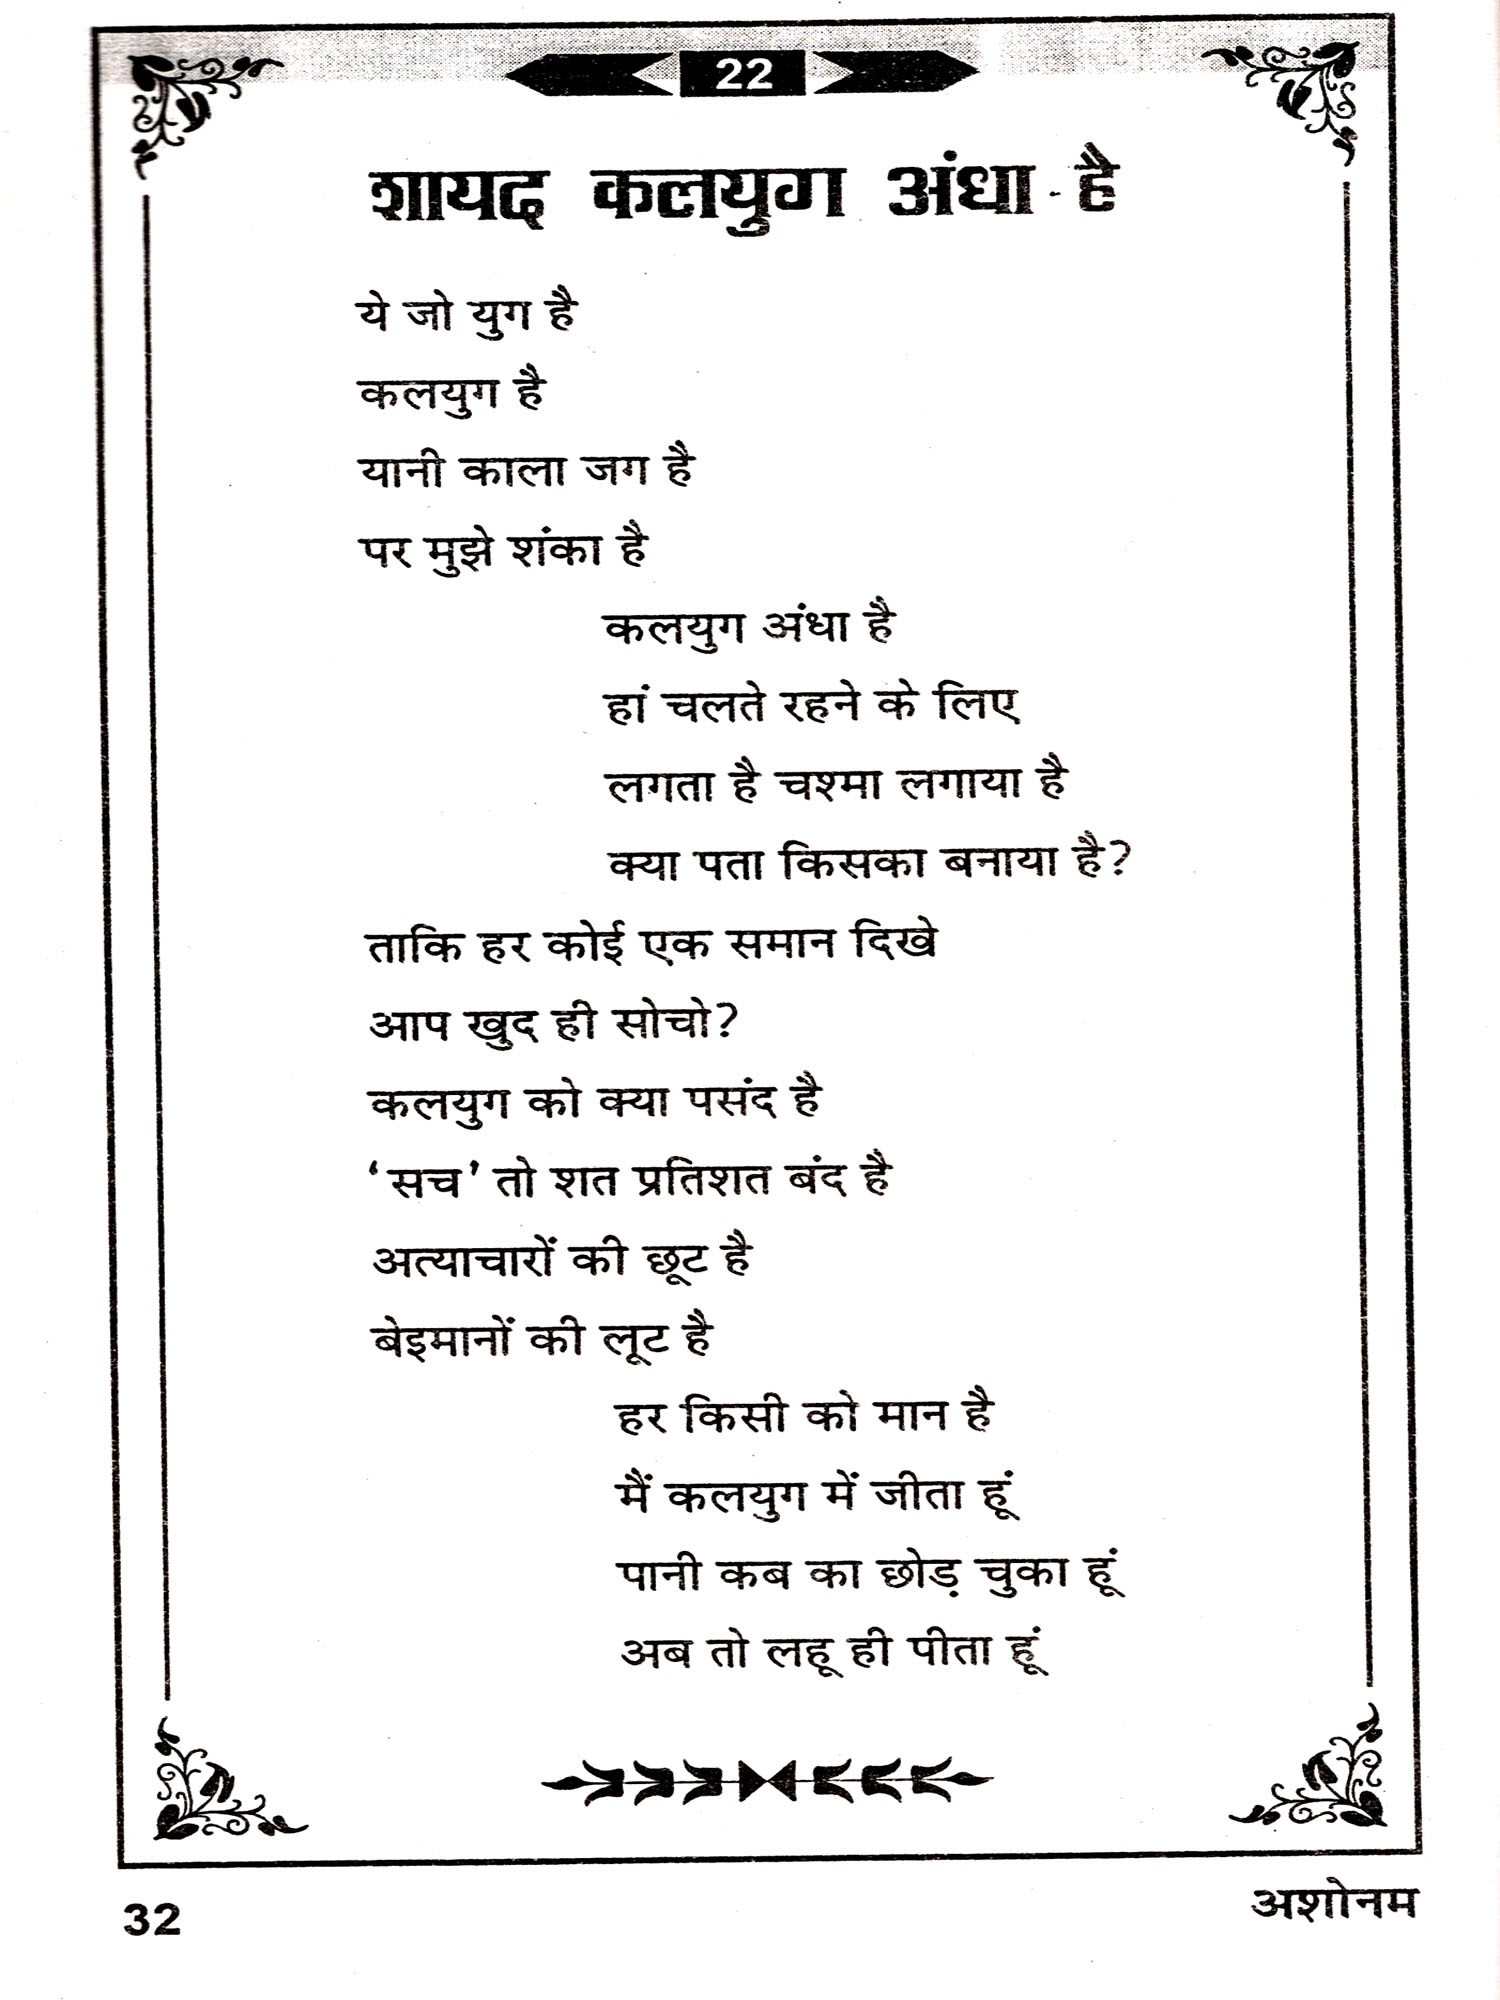 22
शायद कलयुग अंधा है
ये जो युग है
कलयुग है
यानी काला जग है
पर मुझे शंका है
कलयुग अंधा है
हां चलते रहने के लिए
लगता है चश्मा लगाया है
क्या पता किसका बनाया है?
ताकि हर कोई एक समान दिखे
आप खुद ही सोचो?
कलयुग को क्या पसंद है
‘सच’ तो शत प्रतिशत बंद है
अत्याचारों की छूट है
बेइमानों की लूट है
हर किसी को मान है
मैं कलयुग में जीता हूं
पानी कब का छोड़ चुका हूं
अब तो लहू ही पीता हूं
32
अशोनम